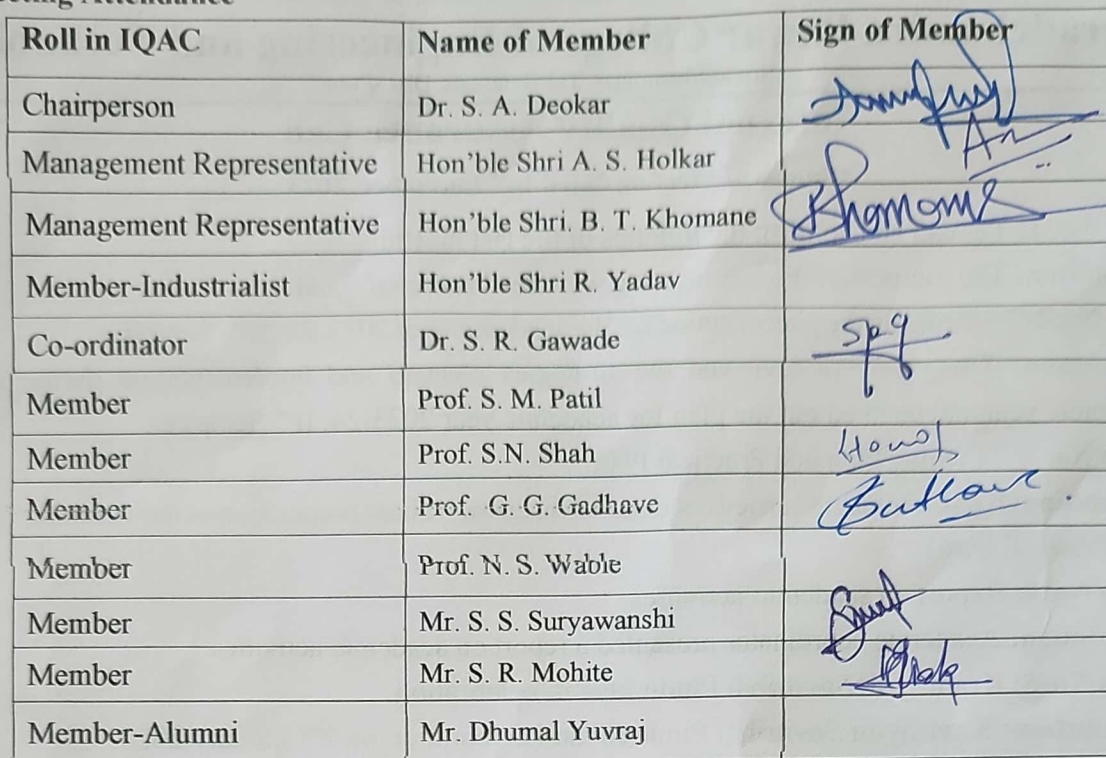 Attendance
Roll in IQAC Name of Member Sign of Member
Chairperson Dr. S. A. Deokar
Management Representative Hon'ble Shri A. S. Holkar
Management Representative Hon'ble Shri. B. T. Khomane Khomane
Member-Industrialist Hon'ble Shri R. Yadav
Co-ordinator Dr. S. R. Gawade
Member Prof. S. M. Patil
Member Prof. S.N. Shah
Member Prof. G. G. Gadhave
Member Prof. N. S. Wable
Member Mr. S. S. Suryawanshi
Member Mr. S. R. Mohite
Member-Alumni Mr. Dhumal Yuvraj